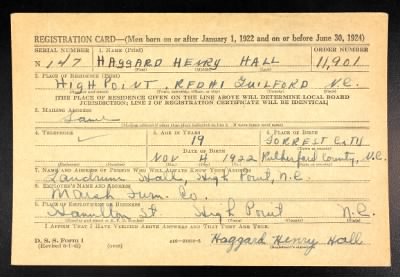 REGISTRATION CARD—(Men born on or after January 1, 1922 and on or before June 30, 1924)
SERIAL NUMBER 1. NAME (Print) ORDER NUMBER
N 147 HAGGARD HENRY HALL 11,901
2. PLACE OF RESIDENCE (Print)
HIGH POINT RFD#1 GUILFORD N.C.
(THE PLACE OF RESIDENCE GIVEN ON THE LINE ABOVE WILL DETERMINE LOCAL BOARD
JURISDICTION; LINE 2 OF REGISTRATION CERTIFICATE WILL BE IDENTICAL)
3. MAILING ADDRESS
Same
4. TELEPHONE 5. AGE IN YEARS 6. PLACE OF BIRTH
19 FORREST CITY
DATE OF BIRTH
NOV 4 1922 Rutherford County, N.C.
7. NAME AND ADDRESS OF PERSON WHO WILL ALWAYS KNOW YOUR ADDRESS
Landrum Hall, High Point, N.C.
8. EMPLOYER'S NAME AND ADDRESS
Marsh Furn. Co.
9. PLACE OF EMPLOYMENT OR BUSINESS
Hamilton St. High Point N.C.
I AFFIRM THAT I HAVE VERIFIED ABOVE ANSWERS AND THAT THEY ARE TRUE.
D. S. S. FORM 1
(Revised 6-1-42) (over) Haggard Henry Hall